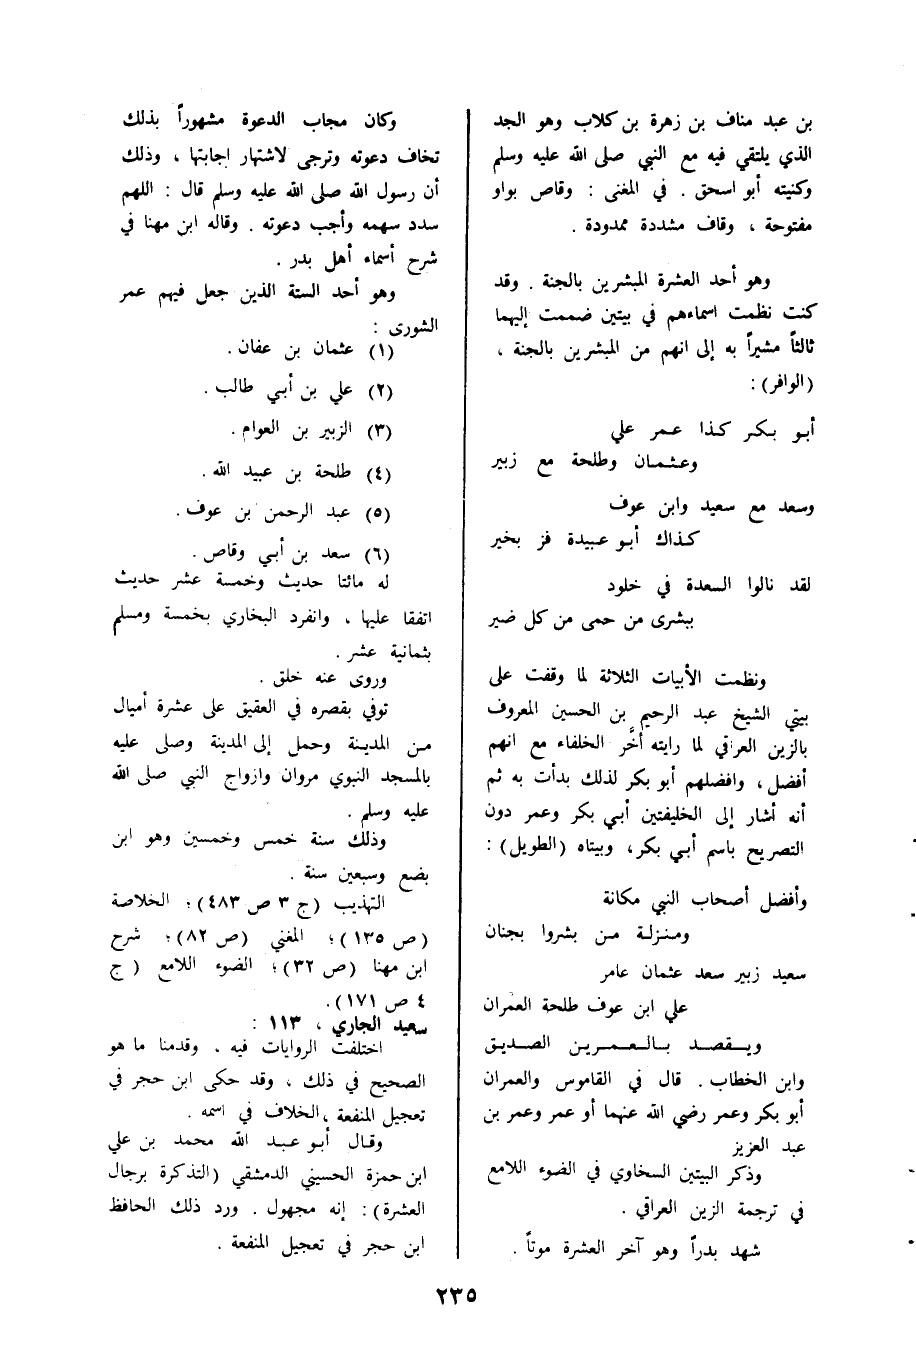 بن عبد مناف بن زهرة بن كلاب وهو الجد
الذي يلتقي فيه مع النبي صلى الله عليه وسلم
وكنيته أبو اسحق . في المغنى : وقاص بواو
مفتوحة ، وقاف مشددة ممدودة .
وهو أحد العشرة المبشرين بالجنة . وقد
كنت نظمت اسماءهم في بيتين ضممت إليهما
ثالثاً مشيراً به إلى انهم من المبشرين بالجنة ،
(الوافر) :
أبو بكر كذا عمر علي
وعثمان وطلحة مع زبير
وسعد مع سعيد وابن عوف
كذاك أبو عبيدة فز بخير
لقد نالوا السعدة في خلود
ببشرى من حمى من كل ضير
ونظمت الأبيات الثلاثة لما وقفت على
بيتي الشيخ عبد الرحيم بن الحسين المعروف
بالزين العراقي لما رايته أخَّر الخلفاء مع انهم
أفضل ، وافضلهم أبو بكر لذلك بدأت به ثم
أنه أشار إلى الخليفتين أبي بكر وعمر دون
التصريح باسم أبي بكر ، وبيتاه (الطويل) :
وأفضل أصحاب النبي مكانة
ومنزلة من بشروا بجنان
سعيد زبير سعد عثمان عامر
علي ابن عوف طلحة العمران
ويقصد بالعمرين الصديق
وابن الخطاب . قال في القاموس والعمران
أبو بكر وعمر رضي الله عنهما أو عمر وعمر بن
عبد العزيز
وذكر البيتين السخاوي في الضوء اللامع
في ترجمة الزين العراقي .
شهد بدراً وهو آخر العشرة موتاً .
وكان مجاب الدعوة مشهوراً بذلك
تخاف دعوته وترجى لاشتهار اجابتها ، وذلك
أن رسول الله صلى الله عليه وسلم قال : اللهم
سدد سهمه وأجب دعوته . وقاله ابن مهنا في
شرح أسماء أهل بدر .
وهو أحد الستة الذين جعل فيهم عمر
الشورى :
(١) عثمان بن عفان .
(٢) علي بن أبي طالب .
(٣) الزبير بن العوام .
(٤) طلحة بن عبيد الله .
(٥) عبد الرحمن بن عوف .
(٦) سعد بن أبي وقاص .
له مائتا حديث وخمسة عشر حديث
اتفقا عليها ، وانفرد البخاري بخمسة ومسلم
بثمانية عشر .
وروى عنه خلق .
توفي بقصره في العقيق على عشرة أميال
من المدينة وحمل إلى المدينة وصلى عليه
بالمسجد النبوي مروان وازواج النبي صلى الله
عليه وسلم .
وذلك سنة خمس وخمسين وهو ابن
بضع وسبعين سنة .
التهذيب (ج ٣ ص ٤٨٣) ؛ الخلاصة
(ص ١٣٥) ؛ المغني (ص ٨٢) ؛ شرح
ابن مهنا (ص ٣٢) ؛ الضوء اللامع (ج
٤ ص ١٧١) .
سعيد الجاري ، ١١٣ :
اختلفت الروايات فيه . وقدمنا ما هو
الصحيح في ذلك ، وقد حكى ابن حجر في
تعجيل المنفعة ، الخلاف في اسمه .
وقال أبو عبد الله محمد بن علي
ابن حمزة الحسيني الدمشقي (التذكرة برجال
العشرة) : إنه مجهول . ورد ذلك الحافظ
ابن حجر في تعجيل المنفعة .
٢٣٥